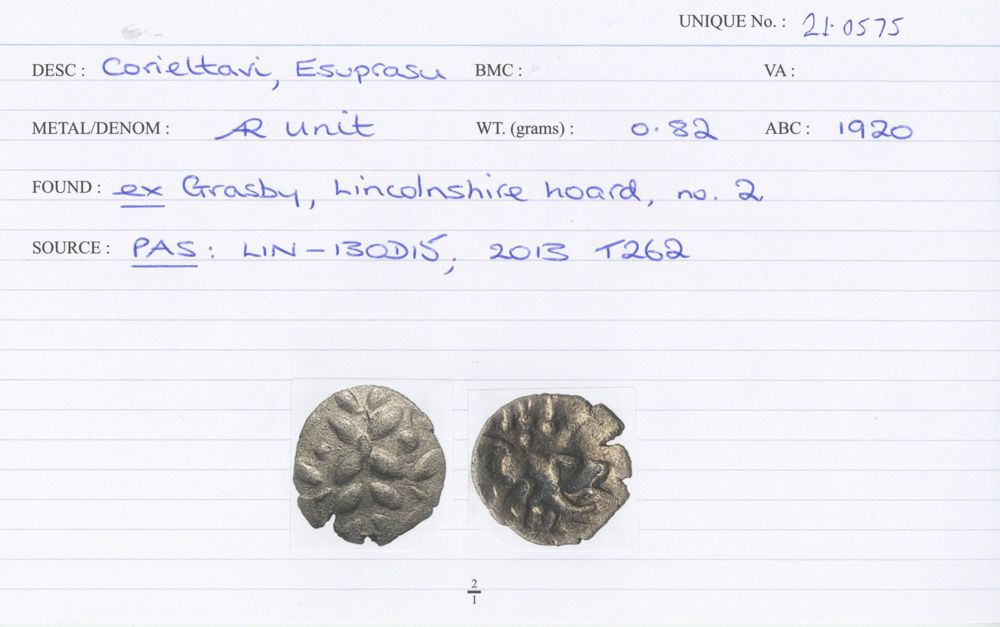 UNIQUE No. : 21.0575
DESC : Corieltavi, Esuprasu BMC : VA :
METAL/DENOM : AR unit WT. (grams) : 0.82 ABC : 1920
FOUND : ex Grasby, Lincolnshire hoard, no. 2
SOURCE : PAS: LIN-130D15, 2013 T262
2
1